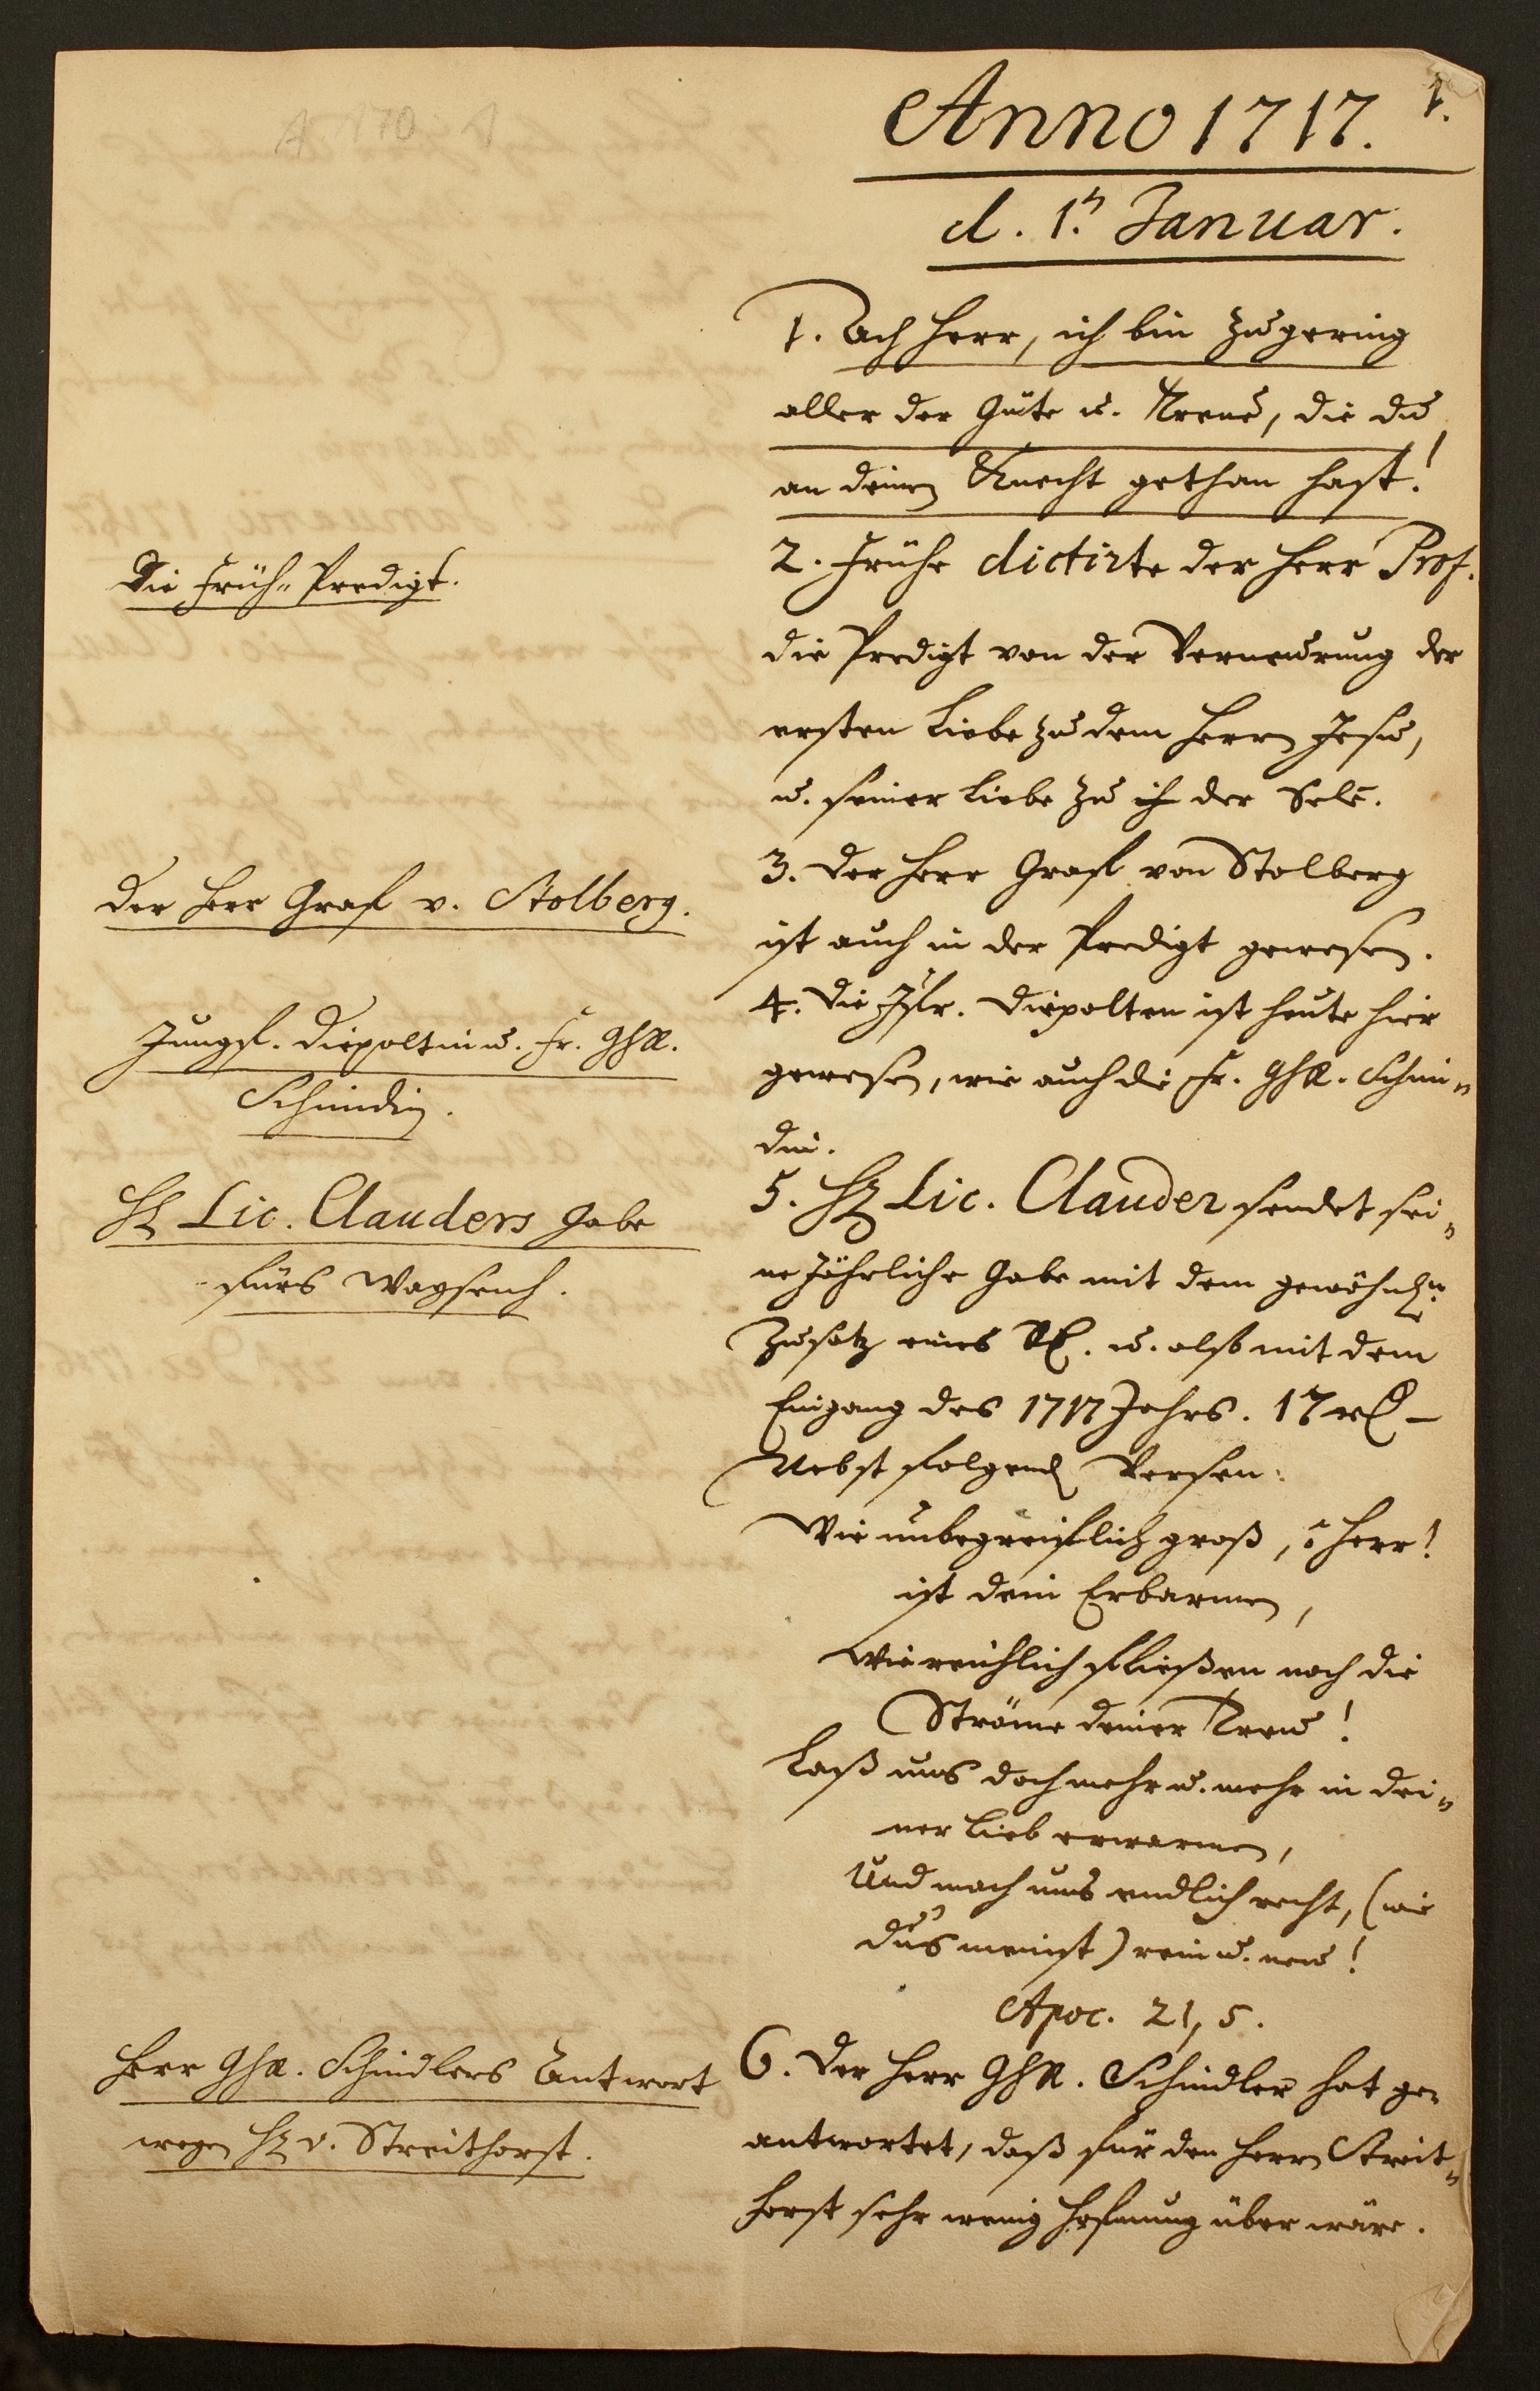 1.
Anno 1717.
d. 1.n Januar.
1. Ach Herr, ich bin zu gering
aller der Güte u. Treue, die du
an deinem Knecht gethan hast!
Die Früh-Predigt.
2. Frühe dictirte der Herr Prof.
die Predigt von der Verneurung der
ersten Liebe zu dem Herrn Jesu,
u. seiner Liebe zu ih der Sele.
Der Herr Graf v. Stolberg.
3. Der Herr Graf von Stolberg
ist auch in der Predigt gewesen.
Jungf. Diepoltin u. Fr. GhR.
Schindin.
4. Die Jfr. Diepolten ist heute hier
gewesen, wie auch die Fr. GhR. Schin-
din.
H. Lic. Clauders Gabe
fürs Waysenh.
5. H. Lic. Clauder sendet sei-
ne Jährliche Gabe mit dem gewöhnl.n
Zusatz eines Rl. u. also mit dem
Eingang des 1717 Jahrs. 17 rl –
Nebst folgend Versen:
Wie unbegreiflich groß, ô Herr!
ist dein Erbarmen,
Wie reichlich fließen noch die
Ströme deiner Treu!
Laß uns doch mehr u. mehr in dei-
ner Lieb erwarmen,
Und mach uns endlich recht, (wie
dus meinst) rein u. neu!
Apoc. 21, 5.
Herr GhR. Schindlers Antwort
wegen H. v. Streithorst.
6. Der Herr GhR. Schindler hat ge-
antwortet, daß für den Herrn Streit-
horst sehr wenig Hofnung über wäre.